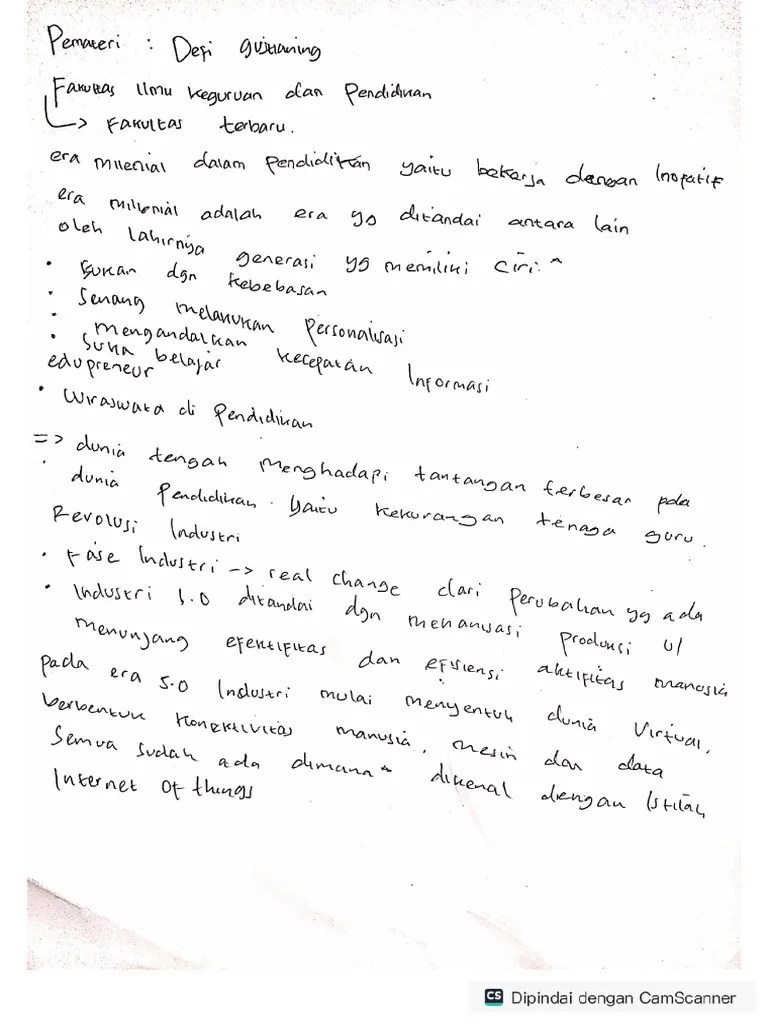 Pemateri : Defi
Fakultas Ilmu Keguruan dan Pendidikan
-> Fakultas terbaru.
era milenial dalam pendidikan yaitu bekerja dengan Inofatif
era millenial adalah era yg ditandai antara lain
oleh lahirnya generasi yg memiliki ciri ^
• Sukan dgn kebebasan
• Senang melakukan Personalisasi
• mengandalkan kecepatan Informasi
• Suka belajar
edupreneur
• Wiraswata di Pendidikan
=> dunia tengah menghadapi tantangan terbesar pda
dunia Pendidikan yaitu kekurangan tenaga guru.
Revolusi Industri
• Fase Industri -> real change dari perubahan yg ada
• Industri 1.0 ditandai dgn mekanisasi produksi u/
menunjang efektifitas dan efisiensi aktifitas manusia
pada era 5.0 Industri mulai menyentuh dunia Virtual,
berbentuk konektivitas manusia, mesin dan data
Semua sudah ada dimana^ dikenal dengan Istilah
Internet Of things
CS Dipindai dengan CamScanner